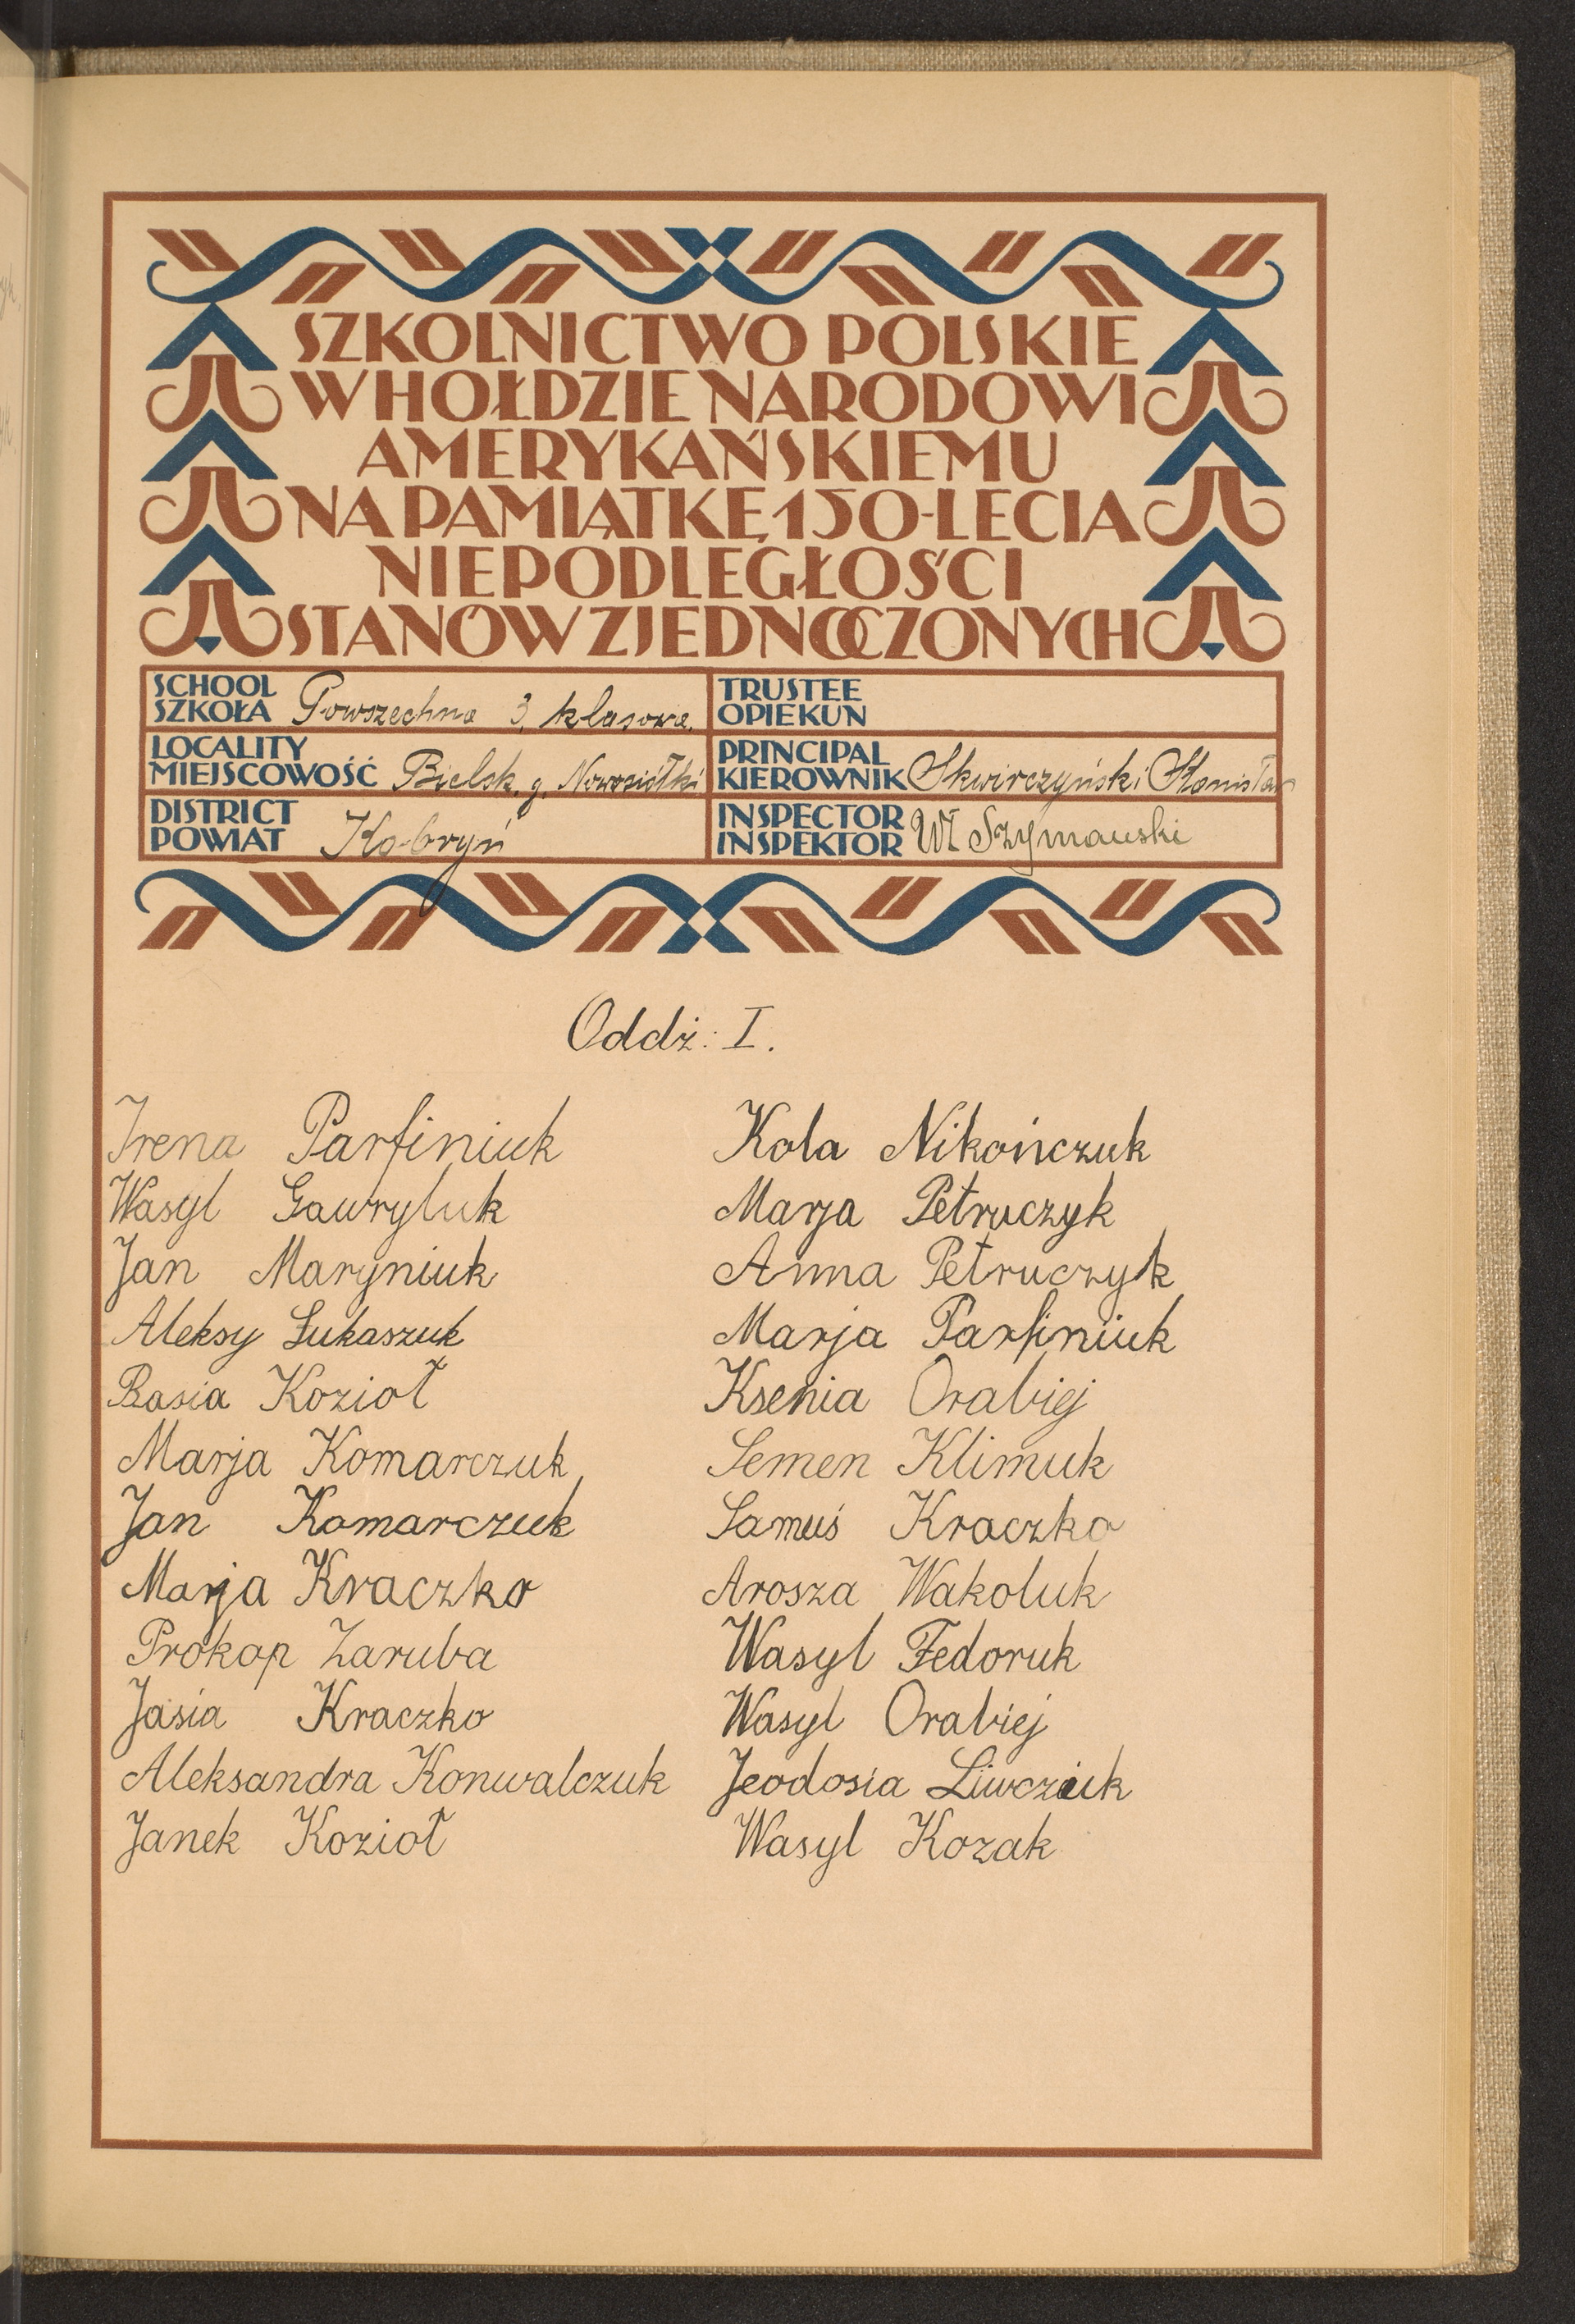 SZKOLNICTWO POLSKIE
W HOŁDZIE NARODOWI
AMERYKAŃSKIEMU
NA PAMIĄTKĘ 150-LECIA
NIEPODLEGŁOŚCI
STANÓW ZJEDNOCZONYCH
SCHOOL
SZKOŁA Powszechna 3 klasowa.
LOCALITY
MIEJSCOWOŚĆ Bielsk. g. Nowosiółki
DISTRICT
POWIAT Kobryń
TRUSTEE
OPIEKUN
PRINCIPAL
KIEROWNIK Skwirczyński Stanisław
INSPECTOR
INSPEKTOR Wł Szymański
Oddz: I.
Irena Parfiniuk
Wasyl Gawryluk
Jan Maryniuk
Aleksy Łukaszuk
Basia Kozioł
Marja Komarczuk
Jan Komarczuk
Marja Kraczko
Prokop Zaruba
Jasia Kraczko
Aleksandra Konwalczuk
Janek Kozioł
Kola Nikończuk
Marja Petruczyk
Anna Petruczyk
Marja Parfiniuk
Ksenia Orabiej
Semen Klimuk
Samuś Kraczko
Arosza Wakoluk
Wasyl Fedoruk
Wasyl Orabiej
Jeodosia
Wasyl Kozak